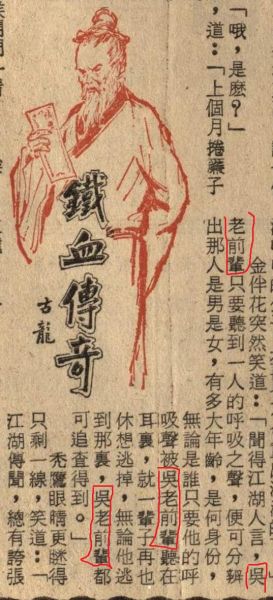 「哦，是麽？」
，道：「上個月捲簾子
鐵血傳奇
古龍
金伴花突然笑道：「聞得江湖人言，吳
老前輩只要聽到一人的呼吸之聲，便可分辨
出那人是男是女，有多大年齡，是何身份，
無論是誰只要他的呼
吸聲被吳老前輩聽在
耳裏，就一輩子再也
休想逃掉，無論他逃
到那裏，吳老前輩都
可追查得到。」
禿鷹眼睛更瞇得
只剩一線，笑道：「
江湖傳聞，總有誇張